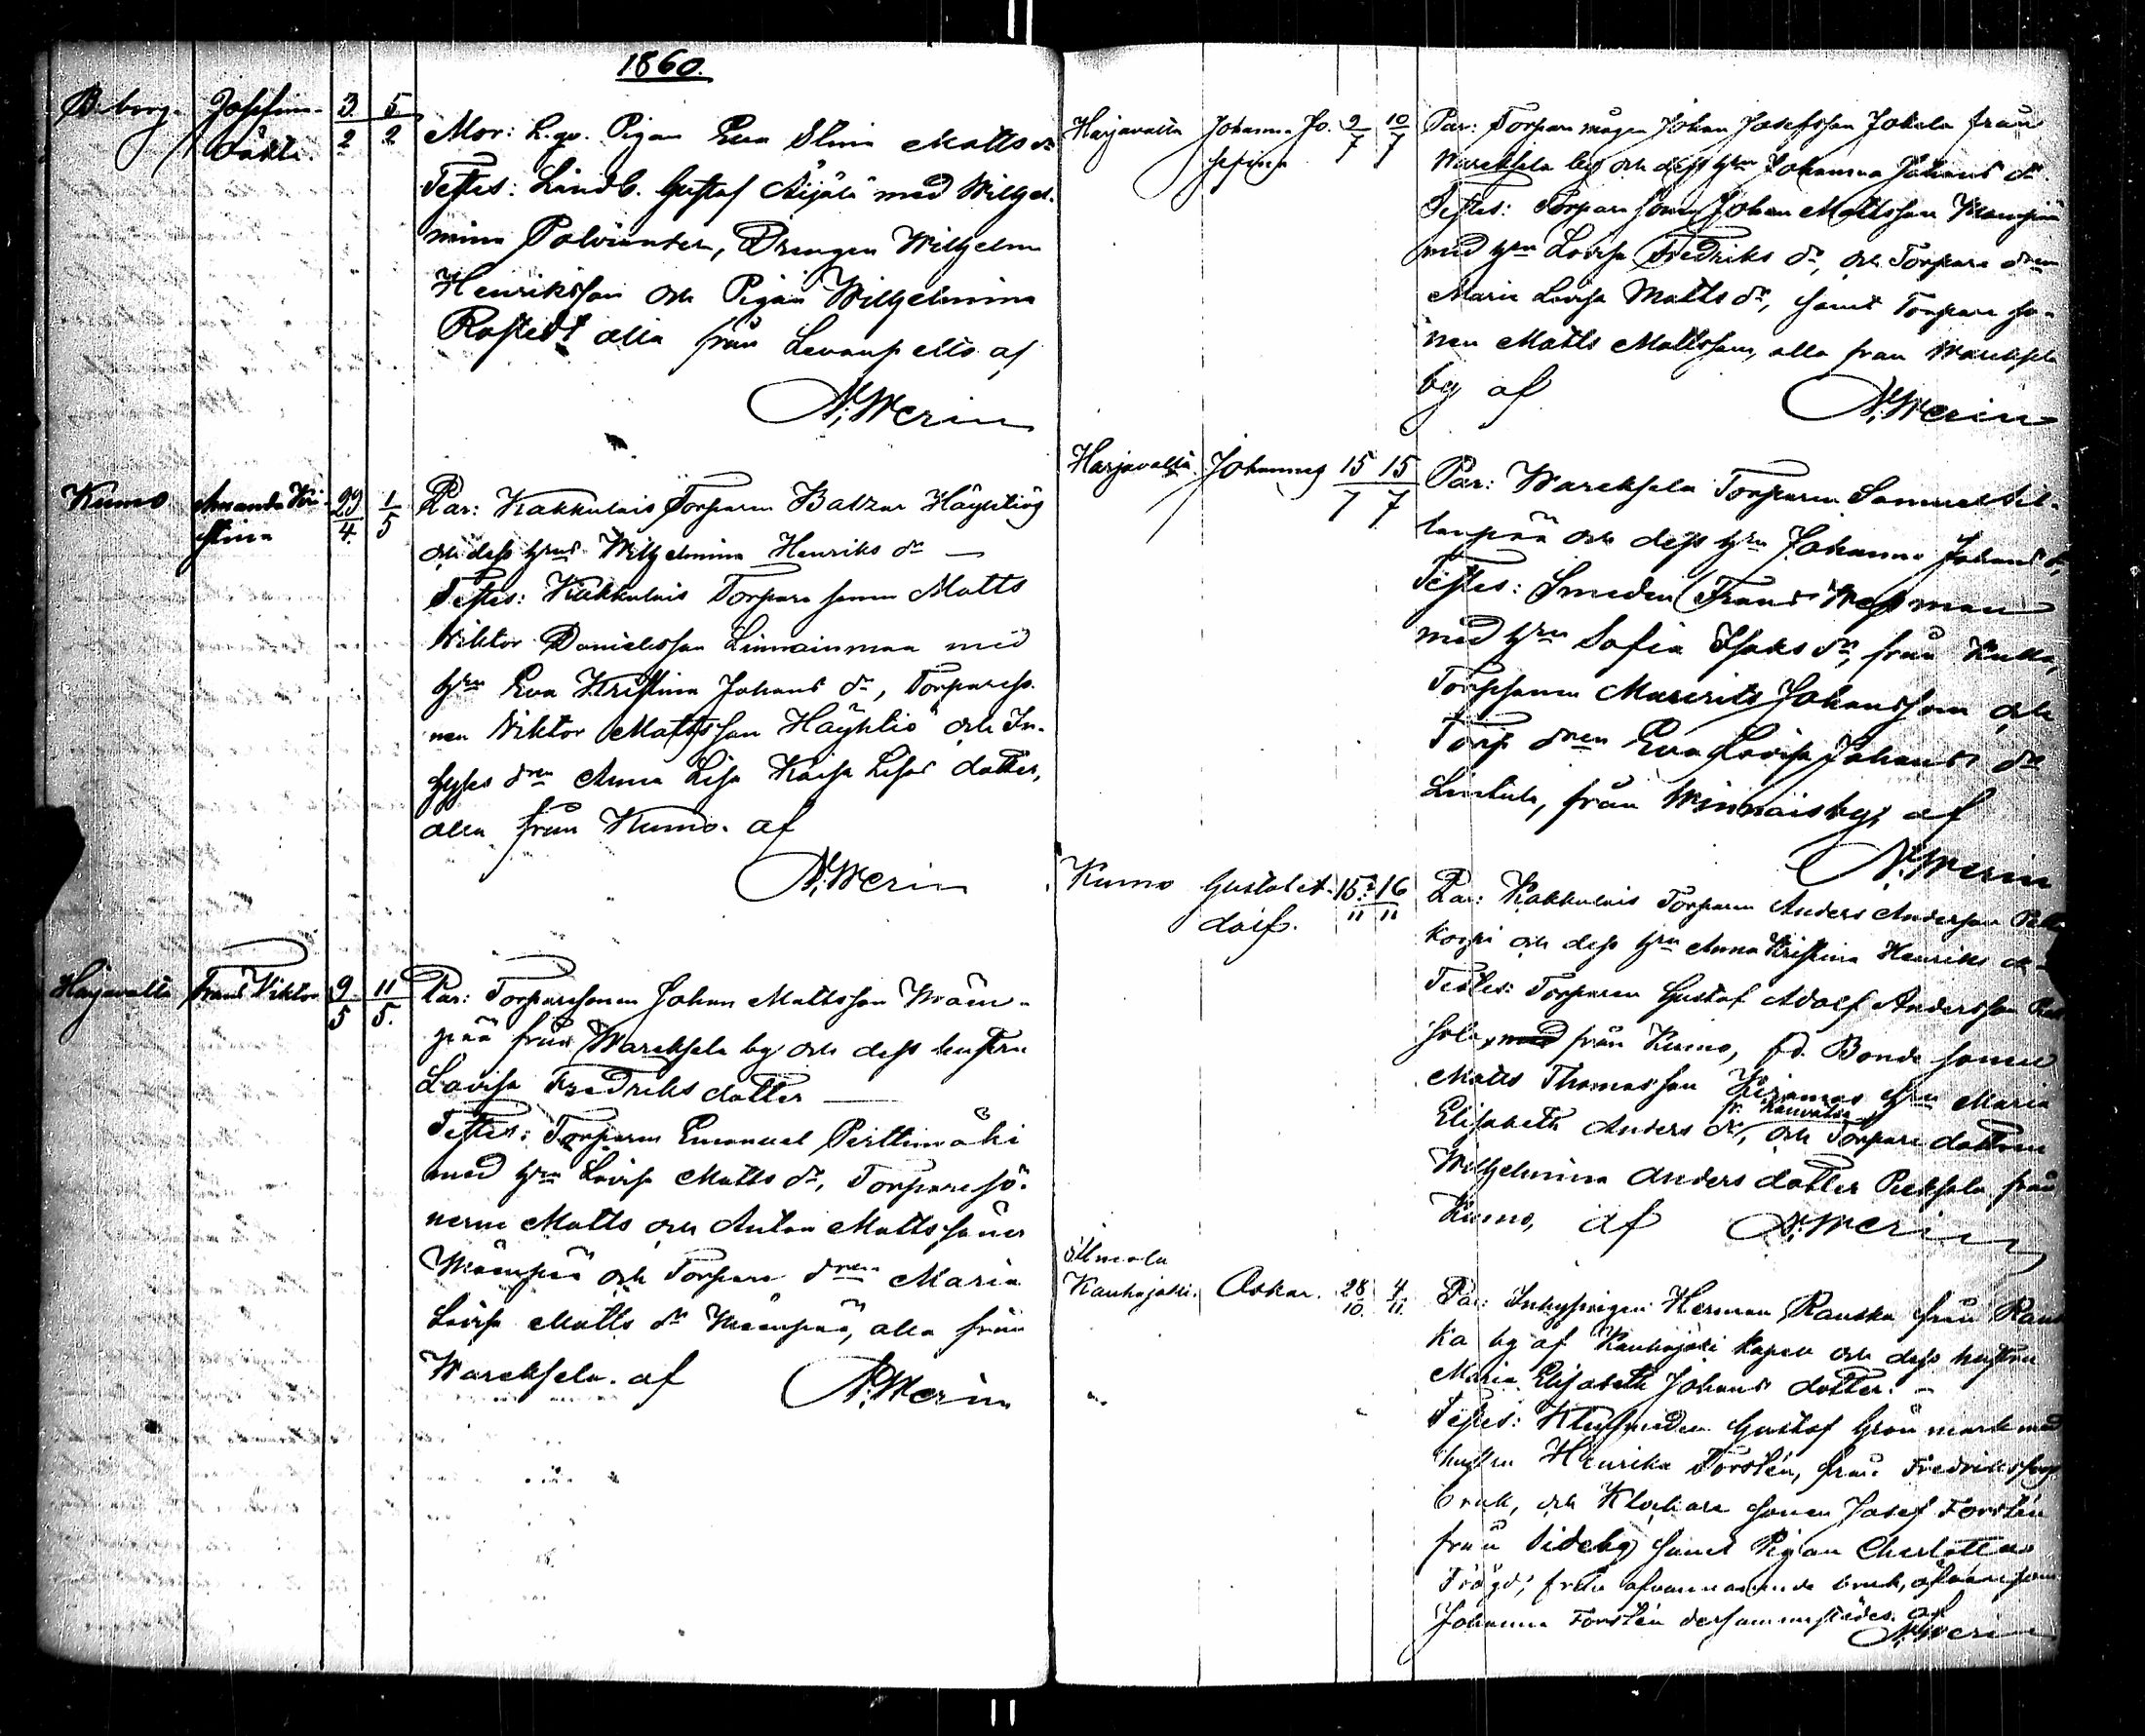 1860.
B. borg. Josefina 3/2 5/2
Mor: L. qv. Pigan Eva Stina Matts dr
Testes: Lindb. Gustaf Äijälä med Wilhel-
mina Polviander, Drengen Wilhelm
Henriksson och Pigan Wilhelmina
Rostedt alla från Levanpelto af
N. Merin
Kumo Amanda Kri- 29/4 1/5
stina
Par: Kakkulais Torparen Baltzar Häyhtiö
och dess hru Wilhelmina Henriks dr
Testes: Kakkulais Torpare sonen Matts
Viktor Danielsson Linnainmaa med
hru Eva Kristina Johans dr, Torpareso-
nen Viktor Mattsson Häyhtiö och In-
hyses dren Anna Lisa Kaisa Lisas dotter,
alla från Kumo. af
N. Merin
Harjavalta Frans Viktor 9/5 11/5.
Par: Torparesonen Johan Mattsson Mäen-
pää från Warekselа by och dess hustru
Lovisa Fredriks dotter
Testes: Torparen Emanuel Perttumäki
med hru Lovisa Matts dr, Torparesö-
nerne Matts och Anton Mattssöner
Mäenpää och Torpare dren Maria
Lovisa Matts dr Mäenpää, alla från
Warekselа. af
N. Merin
Harjavalta Johanna Jo- 9/7 10/7
sefina
Par: Torpare mågen Johan Josefsson Jokela från
Warekselа by och dess hru Johanna Johans dr
Testes: Torpare sonen Johan Mattsson Mäenpää
med hru Lovisa Fredriks dr, och Torpare dren
Maria Lovisa Matts dr, samt Torpare so-
nen Matts Mattsson, alla från Warekselа
by af
N. Merin
Harjavalta Johannes 15/7 15/7
Par: Warekselа Torparen Samuel Sil-
lanpää och dess hru Johanna Johans d.,
Testes: Smeden Frans Wessman
med hru Sofia Isaks dr, från
Torpsonen Maurits Johansson och
Torp dren Eva Lovisa Johans dr
från Winnais by, af
N. Merin
Kumo Gustaf A- 15/11 16/11
dolf.
Par: Kakkulais Torparen Anders Andersson
och dess hru Anna Kristina Henriks dr
Testes: Torparen Gustaf Adolf Andersson
från Kumo, fd. Bonde sonen
Matts Thomasson hru Maria
fr. Kauvatsa
Elisabeth Anders dr, och Torpare dottren
Wilhelmina Anders dotter från
Kumo, af N. Merin
Ilmola
Kauhajoki. Oskar. 28/10. 4/11.
Par: Inhysingen Herman Rauska från Raus-
ka by af Kauhajoki kapell och dess hustru
Maria Elisabeth Johans dotter.
Testes: Klensmeden Gustaf Grönmark med
hustru Henrika Forstén, från Fredriksfors
bruk, och Klockare sonen Josef Forstén
från Sideby samt Pigan Charlotta
Frögd, från ofvannämnde bruk,
Johanna Forstén dersammastädes. af
N. Merin